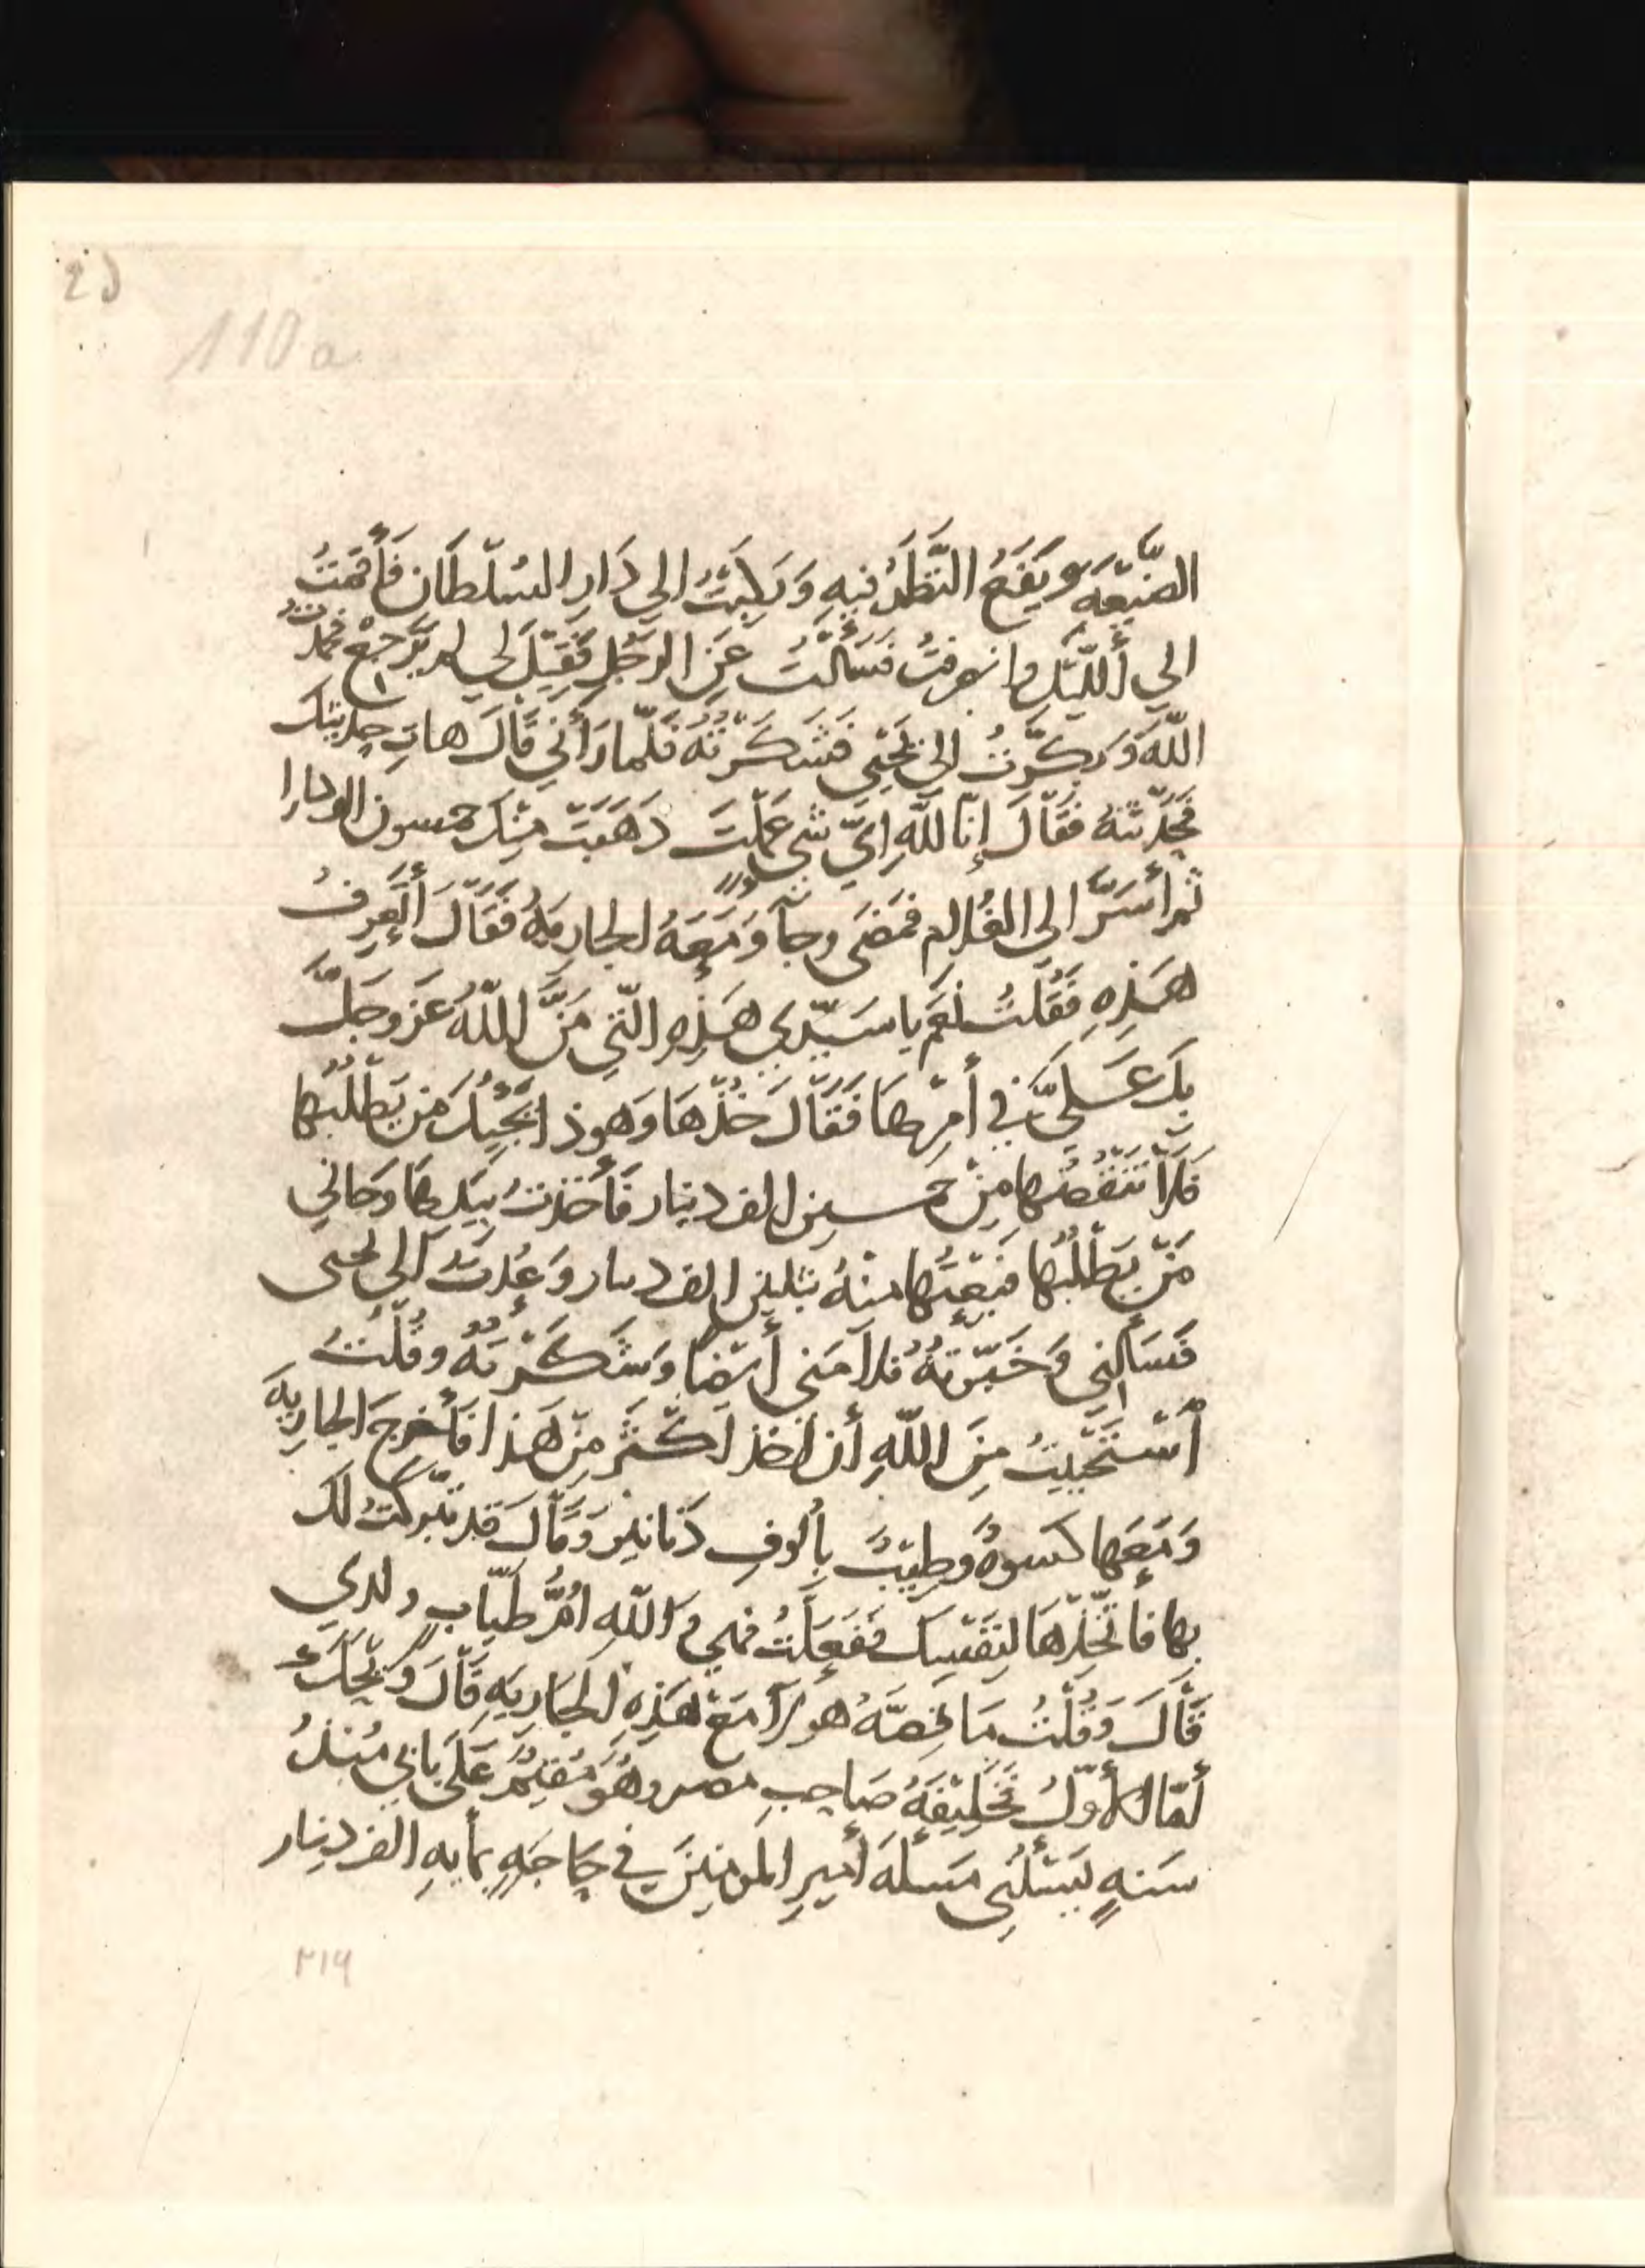 110a
الضَّيْعَةَ وَيَقَعُ النَّظَرُ فِيهِ وَرَكِبْتُ الي دَارِ السُلْطَان فَأَقَمْتُ
الي أَللَّيْلِ وانصرفتُ فَسَأَلْتُ عَنِ الرَجُلِ فَقِيلَ لي لم يَرْجِعْ فحمدتُ
اللّهَ وَبكرْتُ الي يَحْيَي فَشَكَرْتُهُ فَلَمّا رَأَنِي قَالَ هاتِ حِدِيثَكَ
فَحَدَّثتهُ فَقَالَ إنّا للّهِ ايّ شيٍ عَمِلْتَ ذَهَبَتْ مِنْكَ خمسون الف دينارا
ثم أَسَرَّ الي الغُلام فَمَضَى وجاَ وَمَعَهُ الجاريهُ فَقَالَ أَتَعْرِفُ
هَذِهِ فَقُلتُ نَعَم يا سَيّدي هَذِهِ الّتي مَنَّ اللّهُ عَز وجَلَّ
بِكَ عَلَيَّ في أمْرِهَا فَقَالَ خُذْهَا وَهوذا يَجِيُكَ مَن يَطْلُبُها
فَلَا تَنْقُصْها مِنْ خَمسين الف دينار فأَخَذتُ بيَدِهَا وَجاني
مَنْ يَطْلُبُها فَبِعْتُها منهُ بثلثين الف دينار وَعُدتُ الي يحيى
فَسَأَلنِي وَخَبّرْتهُ فلاَمَني أَيْضا وَشَكَرْتهُ وقُلْتُ
أسْتَحْيَيتُ مِنَ اللّهِ أن اخذ اكْثر مِنْ هَذا فَأَخرجَ الجارِيهَ
وَمَعَها كسوهٌ وَطِيبٌ بِأُلوفِ دَنانير وَقَالَ قد تَبَركتُ لك
بها فأتّخِذْهَا لنَفْسِكَ فَفَعلتُ فهي وَاللّهِ امُّ طَيّابٍ ولدي
قَالَ وَقُلْتُ مَا قصّهُ هولاَ مَعَ هَذِهِ الجَاريَهِ قَالَ وَيحَكَ
أمّا الأوّلُ فَخَليْفَهُ صَاحِبِ مصر وهُوَ مُقِيمٌ عَلَى بَابي مُنذُ
سَنهٍ يَسْئَلُني مَسئلهَ أَمِيرِ المومنِينَ في حَاجَهٍ بمأيهِ الف دِينار
٢١٩